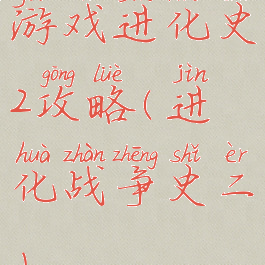 游戏进化史
gōng lüè jìn
2攻略(进
huà zhàn zhēng shǐ èr
化战争史二
)